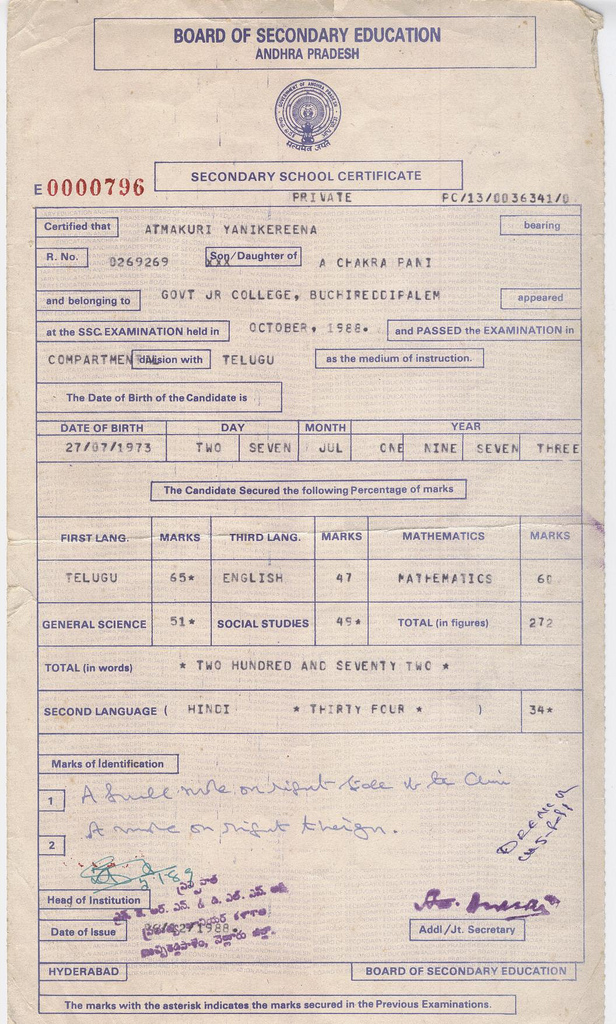 BOARD OF SECONDARY EDUCATION
ANDHRA PRADESH
GOVERNMENT OF ANDHRA PRADESH
सत्यमेव जयते
SECONDARY SCHOOL CERTIFICATE
E 0000796
PRIVATE PC/13/0036341/0
Certified that ATMAKURI YANIKEREENA bearing
R. No. 0269269 Son/Daughter of A CHAKRA PANI
and belonging to GOVT JR COLLEGE, BUCHIREDDIPALEM appeared
at the SSC. EXAMINATION held in OCTOBER, 1988. and PASSED the EXAMINATION in
COMPARTMENTAL division with TELUGU as the medium of instruction.
The Date of Birth of the Candidate is
DATE OF BIRTH DAY MONTH YEAR
27/07/1973 TWO SEVEN JUL ONE NINE SEVEN THREE
The Candidate Secured the following Percentage of marks
FIRST LANG. MARKS THIRD LANG. MARKS MATHEMATICS MARKS
TELUGU 65* ENGLISH 47 MATHEMATICS 60
GENERAL SCIENCE 51* SOCIAL STUDIES 49* TOTAL (in figures) 272
TOTAL (in words) * TWO HUNDRED AND SEVENTY TWO *
SECOND LANGUAGE ( HINDI * THIRTY FOUR * ) 34*
Marks of Identification
1 A small mole on right side to the Chin
2 A mole on right
Head of Institution
Date of Issue /12/1988.
Addl./Jt. Secretary
HYDERABAD BOARD OF SECONDARY EDUCATION
The marks with the asterisk indicates the marks secured in the Previous Examinations.